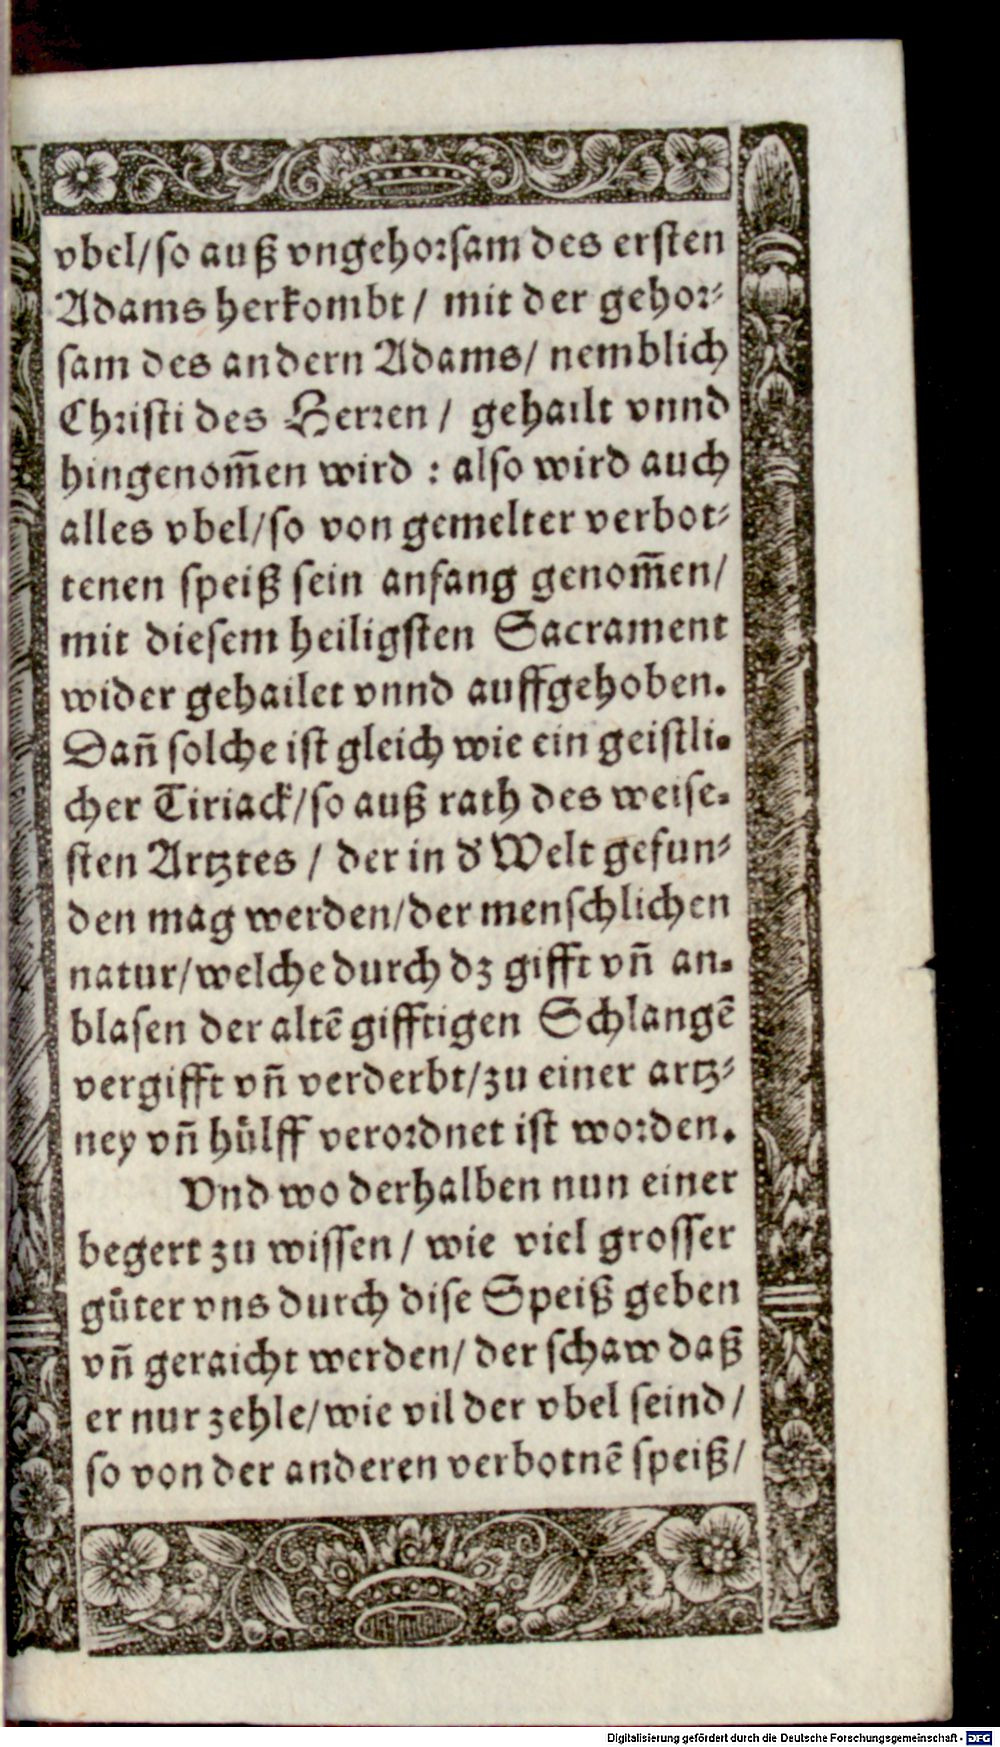 vbel/so auß vngehorsam des ersten
Adams herkombt / mit der gehor⸗
sam des andern Adams/ nemblich
Christi des Herren / gehailt vnnd
hingenom̃en wird : also wird auch
alles vbel/so von gemelter verbot⸗
tenen speiß sein anfang genom̃en/
mit diesem heiligsten Sacrament
wider gehailet vnnd auffgehoben.
Dañ solche ist gleich wie ein geistli⸗
cher Tiriack/so auß rath des weise⸗
sten Artztes / der in d' Welt gefun⸗
den mag werden/der menschlichen
natur/welche durch dz gifft vñ an⸗
blasen der altẽ gifftigen Schlangẽ
vergifft vñ verderbt/zu einer artz⸗
ney vñ hůlff verordnet ist worden.
Vnd wo derhalben nun einer
begert zu wissen / wie viel grosser
gůter vns durch dise Speiß geben
vñ geraicht werden/ der schaw daß
er nur zehle/wie vil der vbel seind /
so von der anderen verbotnẽ speiß/
Digitalisierung gefördert durch die Deutsche Forschungsgemeinschaft - DFG